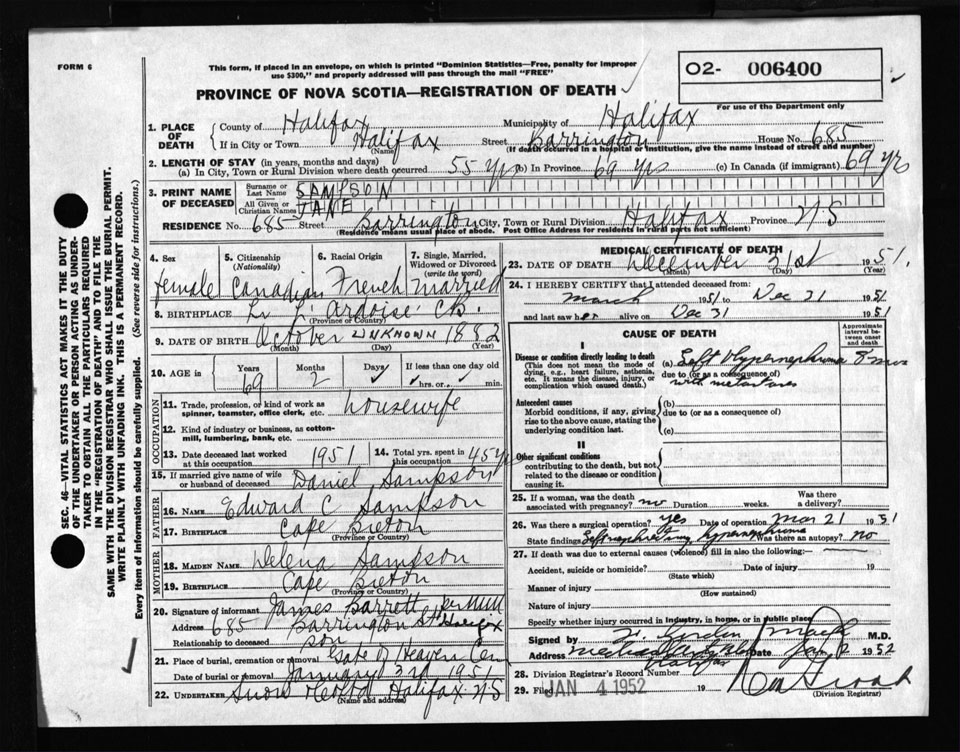 FORM 6
This form, if placed in an envelope, on which is printed "Dominion Statistics—Free, penalty for improper
use $300," and properly addressed will pass through the mail "FREE"
O2- 006400
PROVINCE OF NOVA SCOTIA—REGISTRATION OF DEATH
For use of the Department only
1. PLACE OF DEATH County of Halifax Municipality of Halifax
If in City or Town Halifax Street Barrington House No. 685
(Name) (If death occurred in a hospital or institution, give the name instead of street and number)
2. LENGTH OF STAY (in years, months and days)
(a) In City, Town or Rural Division where death occurred 55 yrs (b) in Province 69 yrs (c) In Canada (if immigrant) 69 yrs
3. PRINT NAME OF DECEASED Surname or Last Name SAMPSON
All Given or Christian Names JANE
RESIDENCE No. 685 Street Barrington City, Town or Rural Division Halifax Province N S
(Residence means usual place of abode. Post Office Address for residents in rural parts not sufficient)
4. Sex female
5. Citizenship (Nationality) Canadian
6. Racial Origin French
7. Single, Married, Widowed or Divorced (write the word) married
8. BIRTHPLACE L'Ardoise C.B.
(Province or Country)
9. DATE OF BIRTH October UNKNOWN 1882
(Month) (Day) (Year)
10. AGE in Years 69 Months 2 Days If less than one day old hrs. or min.
OCCUPATION
11. Trade, profession, or kind of work as spinner, teamster, office clerk, etc. housewife
12. Kind of industry or business, as cotton-mill, lumbering, bank, etc.
13. Date deceased last worked at this occupation 1951
14. Total yrs. spent in this occupation 45 yrs
15. If married give name of wife or husband of deceased Daniel Sampson
FATHER
16. NAME Edward C Sampson
17. BIRTHPLACE Cape Breton
(Province or Country)
MOTHER
18. MAIDEN NAME Helena Sampson
19. BIRTHPLACE Cape Breton
(Province or Country)
20. Signature of informant James Barrett per
Address 685 Barrington St Halifax
Relationship to deceased son
21. Place of burial, cremation or removal Gate of Heaven Cem
Date of burial or removal January 3rd 1951
22. UNDERTAKER Snow Halifax N S
(Name and address)
MEDICAL CERTIFICATE OF DEATH
23. DATE OF DEATH December 31st 1951.
(Month) (Day) (Year)
24. I HEREBY CERTIFY that I attended deceased from:
March 1951 to Dec 31 1951
and last saw her alive on Dec 31 1951
CAUSE OF DEATH
Approximate interval between onset and death
I
Disease or condition directly leading to death
(This does not mean the mode of dying, e.g., heart failure, asthenia, etc. It means the disease, injury, or complication which caused death.)
(a) Left Hypernephroma 8 mos
due to (or as a consequence of)
with metastases
Antecedent causes
Morbid conditions, if any, giving rise to the above cause, stating the underlying condition last.
(b)
due to (or as a consequence of)
(c)
II
Other significant conditions
contributing to the death, but not related to the disease or condition causing it.
25. If a woman, was the death associated with pregnancy? no Duration weeks. Was there a delivery?
26. Was there a surgical operation? yes Date of operation Mar 21 1951
State findings Left nephrectomy hypernephroma Was there an autopsy? no
27. If death was due to external causes (violence) fill in also the following:
Accident, suicide or homicide? Date of injury 19
(State which)
Manner of injury
(How sustained)
Nature of injury
Specify whether injury occurred in industry, in home, or in public place
Signed by M.D.
Address Medical Arts Bldg Halifax Date Jan 2 1952
28. Division Registrar's Record Number
29. Filed JAN 4 1952 19
(Division Registrar)
SEC. 46—VITAL STATISTICS ACT MAKES IT THE DUTY
OF THE UNDERTAKER OR PERSON ACTING AS UNDER-
TAKER TO OBTAIN ALL THE PARTICULARS REQUIRED
IN THE "REGISTRATION OF DEATH" AND TO FILE THE
SAME WITH THE DIVISION REGISTRAR WHO SHALL ISSUE THE BURIAL PERMIT.
WRITE PLAINLY WITH UNFADING INK. THIS IS A PERMANENT RECORD.
Every item of information should be carefully supplied. (See reverse side for instructions.)